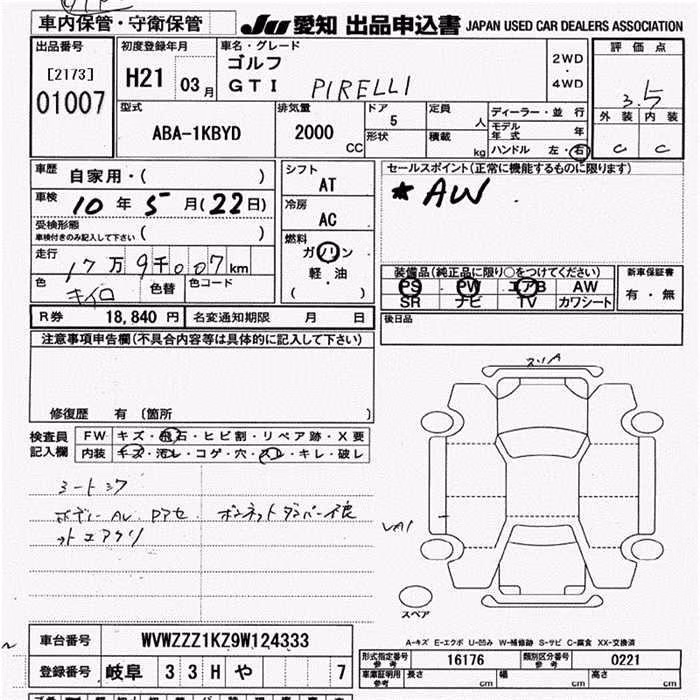 車内保管・守衛保管
JU 愛知 出品申込書 JAPAN USED CAR DEALERS ASSOCIATION
出品番号
[2173]
01007
初度登録年月
H21 03月
車名・グレード
ゴルフ
GTI PIRELLI
2WD
・
4WD
評価点
3.5
外装 内装
C C
型式
ABA-1KBYD
排気量
2000
CC
ドア
5
形状
定員
人
積載
kg
ディーラー・並行
モデル年式 年
ハンドル 左・右
車歴 自家用・( )
車検 10年5月(22日)
受検形態
車検付きのみ記入して下さい ( )
走行
17万9千007km
色
キイロ
色替
色コード
シフト
AT
冷房
AC
燃料
ガソリン
軽・油
( )
セールスポイント(正常に機能するものに限ります)
★AW
装備品(純正品に限り○をつけてください)
PS PW エアB AW
SR ナビ TV カワシート
新車保証書
有・無
R券 18,840円 名変通知期限 月 日
後日品
注意事項申告欄(不具合内容等は具体的に記入して下さい)
修復歴 有 (箇所 )
検査員
記入欄
FW キズ・飛石・ヒビ割・リペア跡・X要
内装 キズ・汚レ・コゲ・穴・スレ・キレ・破レ
シートシワ
ボデー AU
ボンネットダンパー不良
スリA
UA1
スペア
A-キズ E-エクボ U-凹み W-補修跡 S-サビ C-腐食 XX-交換済
車台番号 WVWZZZ1KZ9W124333
登録番号 岐阜 33Hや 7
形式指定番号
参考
16176
類別区分番号
参考
0221
車庫証明用
参考
長さ cm 幅 cm 高さ cm